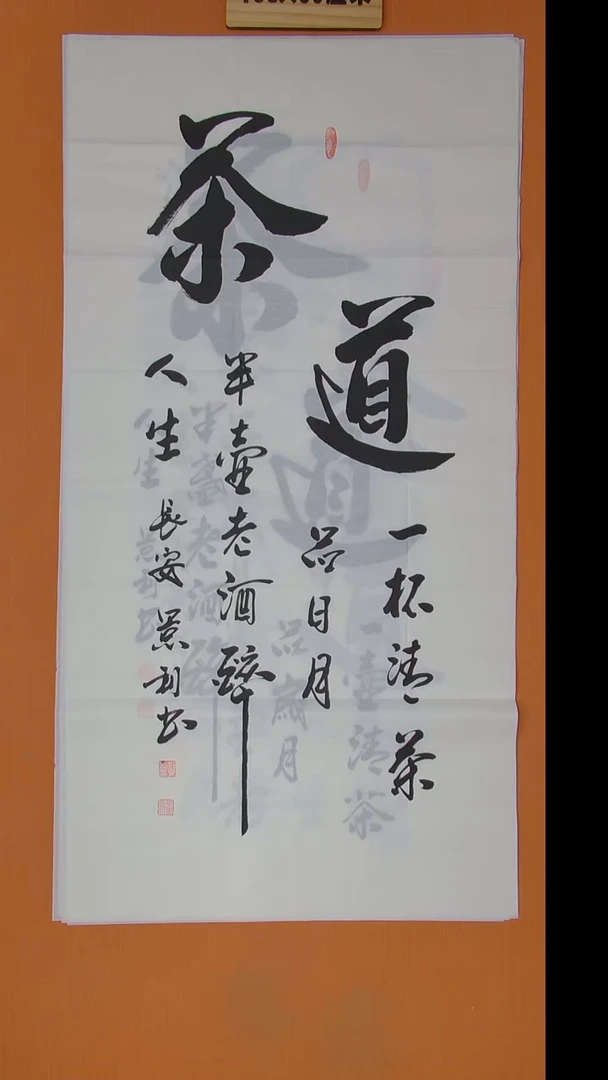 茶道
一杯清茶
品日月
半壶老酒醉
人生 長安 景利书